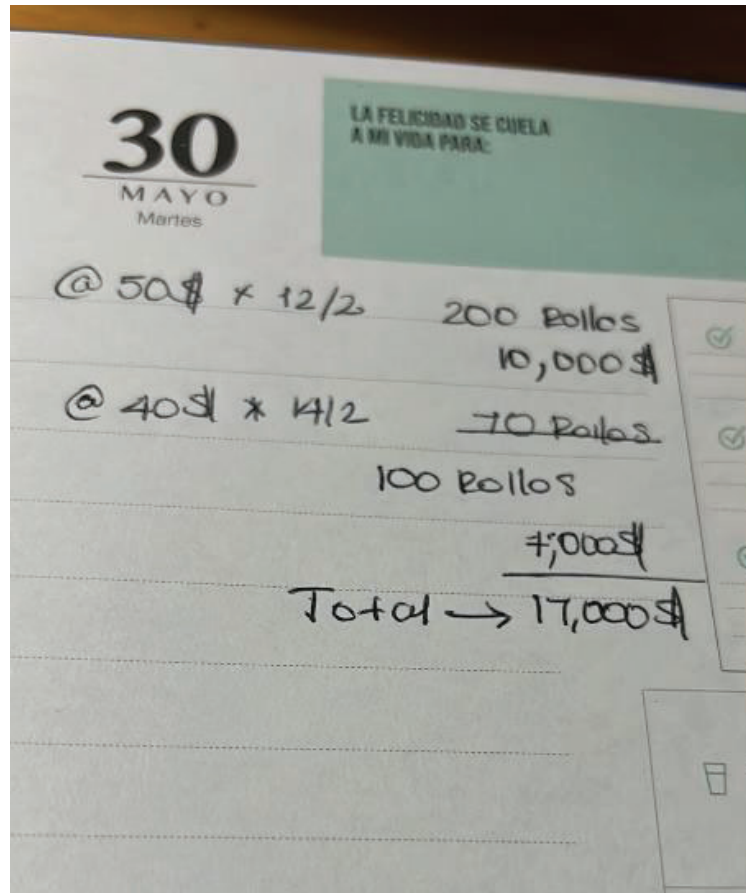 30
MAYO
Martes
LA FELICIDAD SE CUELA
A MI VIDA PARA:
@ 50$ × 12/2 200 Rollos
10,000$
@ 40$ * 14/2 70 Rollos
100 Rollos
7,000$
Total → 17,000$